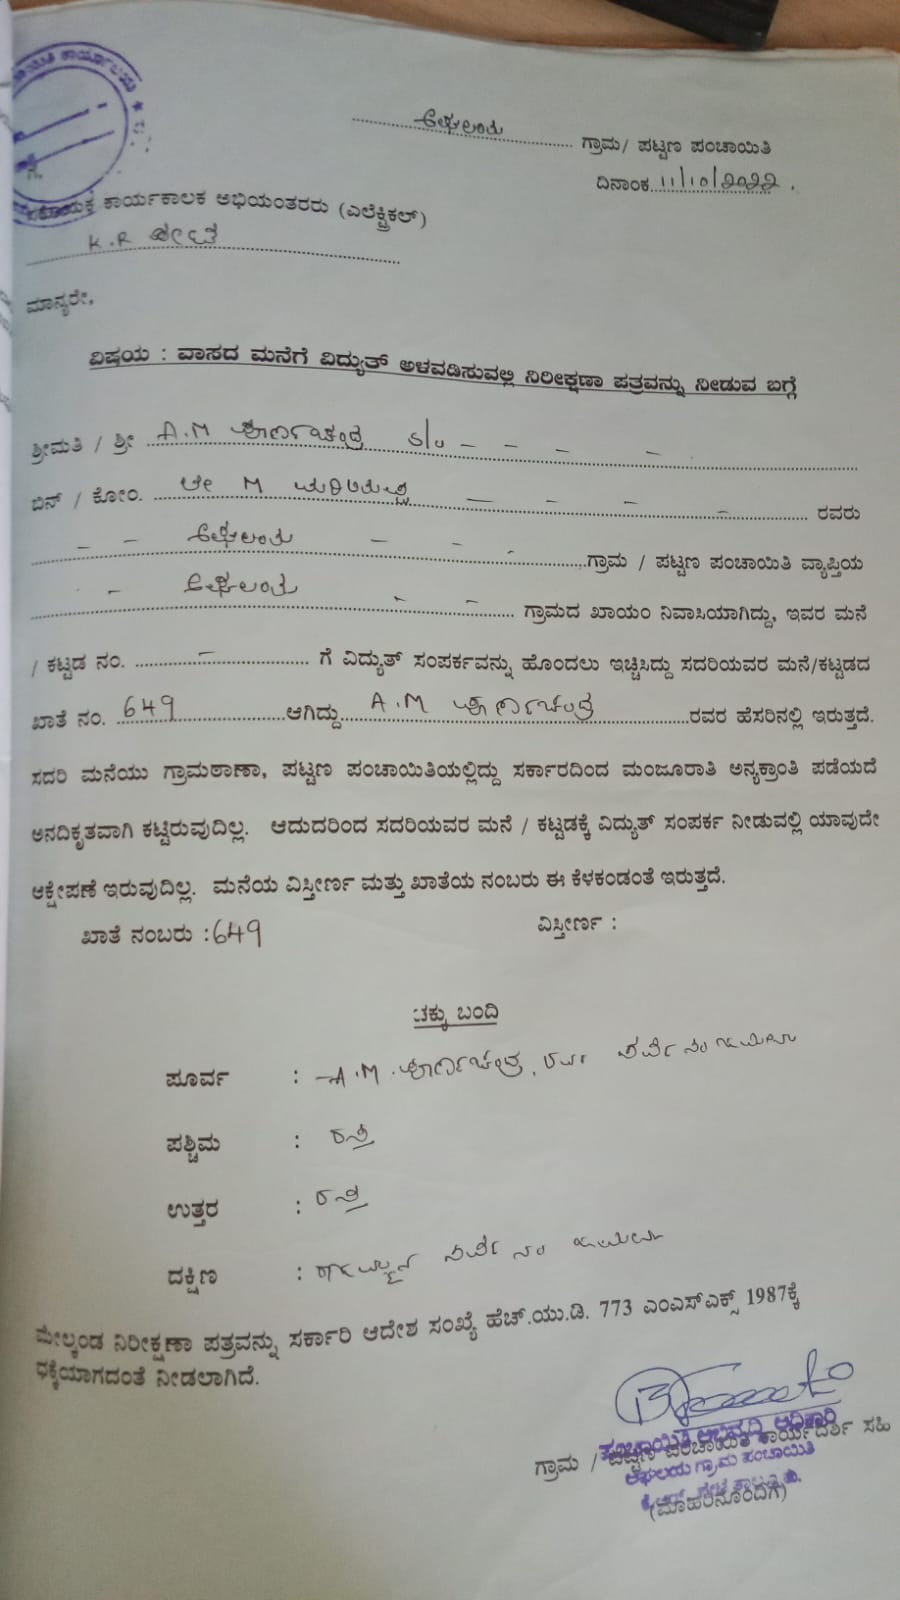 ಗ್ರಾಮ/ ಪಟ್ಟಣ ಪಂಚಾಯಿತಿ
ದಿನಾಂಕ 11/10/2022 .
ಕಾರ್ಯಕಾಲಕ ಅಭಿಯಂತರರು (ಎಲೆಕ್ಟ್ರಿಕಲ್)
K.R ಪೇಟೆ
ಮಾನ್ಯರೇ,
ವಿಷಯ : ವಾಸದ ಮನೆಗೆ ವಿದ್ಯುತ್ ಅಳವಡಿಸುವಲ್ಲಿ ನಿರೀಕ್ಷಣಾ ಪತ್ರವನ್ನು ನೀಡುವ ಬಗ್ಗೆ
ಶ್ರೀಮತಿ / ಶ್ರೀ A.M S/o
ಬಿನ್ / ಕೋಂ. M ರವರು
ಗ್ರಾಮ / ಪಟ್ಟಣ ಪಂಚಾಯಿತಿ ವ್ಯಾಪ್ತಿಯ
ಗ್ರಾಮದ ಖಾಯಂ ನಿವಾಸಿಯಾಗಿದ್ದು, ಇವರ ಮನೆ
/ ಕಟ್ಟಡ ನಂ. – ಗೆ ವಿದ್ಯುತ್ ಸಂಪರ್ಕವನ್ನು ಹೊಂದಲು ಇಚ್ಚಿಸಿದ್ದು ಸದರಿಯವರ ಮನೆ/ಕಟ್ಟಡದ
ಖಾತೆ ನಂ. 649 ಆಗಿದ್ದು A.M ರವರ ಹೆಸರಿನಲ್ಲಿ ಇರುತ್ತದೆ.
ಸದರಿ ಮನೆಯು ಗ್ರಾಮಠಾಣಾ, ಪಟ್ಟಣ ಪಂಚಾಯಿತಿಯಲ್ಲಿದ್ದು ಸರ್ಕಾರದಿಂದ ಮಂಜೂರಾತಿ ಅನ್ಯಕ್ರಾಂತಿ ಪಡೆಯದೆ
ಅನದಿಕೃತವಾಗಿ ಕಟ್ಟಿರುವುದಿಲ್ಲ. ಆದುದರಿಂದ ಸದರಿಯವರ ಮನೆ / ಕಟ್ಟಡಕ್ಕೆ ವಿದ್ಯುತ್ ಸಂಪರ್ಕ ನೀಡುವಲ್ಲಿ ಯಾವುದೇ
ಆಕ್ಷೇಪಣೆ ಇರುವುದಿಲ್ಲ. ಮನೆಯ ವಿಸ್ತೀರ್ಣ ಮತ್ತು ಖಾತೆಯ ನಂಬರು ಈ ಕೆಳಕಂಡಂತೆ ಇರುತ್ತದೆ.
ಖಾತೆ ನಂಬರು :649 ವಿಸ್ತೀರ್ಣ :
ಚಕ್ಕು ಬಂದಿ
ಪೂರ್ವ : A.M.
ಪಶ್ಚಿಮ : ರಸ್ತೆ
ಉತ್ತರ : ರಸ್ತೆ
ದಕ್ಷಿಣ :
ಮೇಲ್ಕಂಡ ನಿರೀಕ್ಷಣಾ ಪತ್ರವನ್ನು ಸರ್ಕಾರಿ ಆದೇಶ ಸಂಖ್ಯೆ ಹೆಚ್.ಯು.ಡಿ. 773 ಎಂಎಸ್ಎಕ್ಸ್ 1987ಕ್ಕೆ
ಧಕ್ಕೆಯಾಗದಂತೆ ನೀಡಲಾಗಿದೆ.
ಪಂಚಾಯಿತಿ ಅಭಿವೃದ್ಧಿ ಅಧಿಕಾರಿ
ಗ್ರಾಮ / ಪಟ್ಟಣ ಪಂಚಾಯಿತಿ ಕಾರ್ಯದರ್ಶಿ ಸಹಿ
ಗ್ರಾಮ ಪಂಚಾಯಿತಿ
(ಮೊಹರಿನೊಂದಿಗೆ)